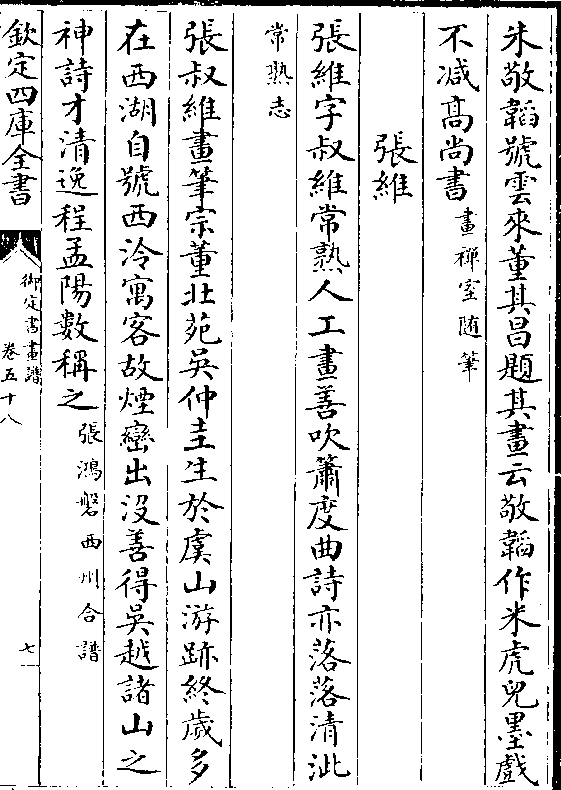 朱敬韜號雲來董其昌題其畫云敬韜作米虎兒墨戲
不減髙尚書畫禪室随筆
張維
張維字叔維常熟人工畫善吹簫度曲詩亦落落清泚
常熟志
張叔維畫筆宗董北苑吳仲圭生於虞山游跡終歲多
在西湖自號西泠寓客故煙巒出没善得吳越諸山之
神詩才清逸程孟陽數稱之張鴻磐西州合譜
欽定四庫全書
御定書畫譜
卷五十八
七